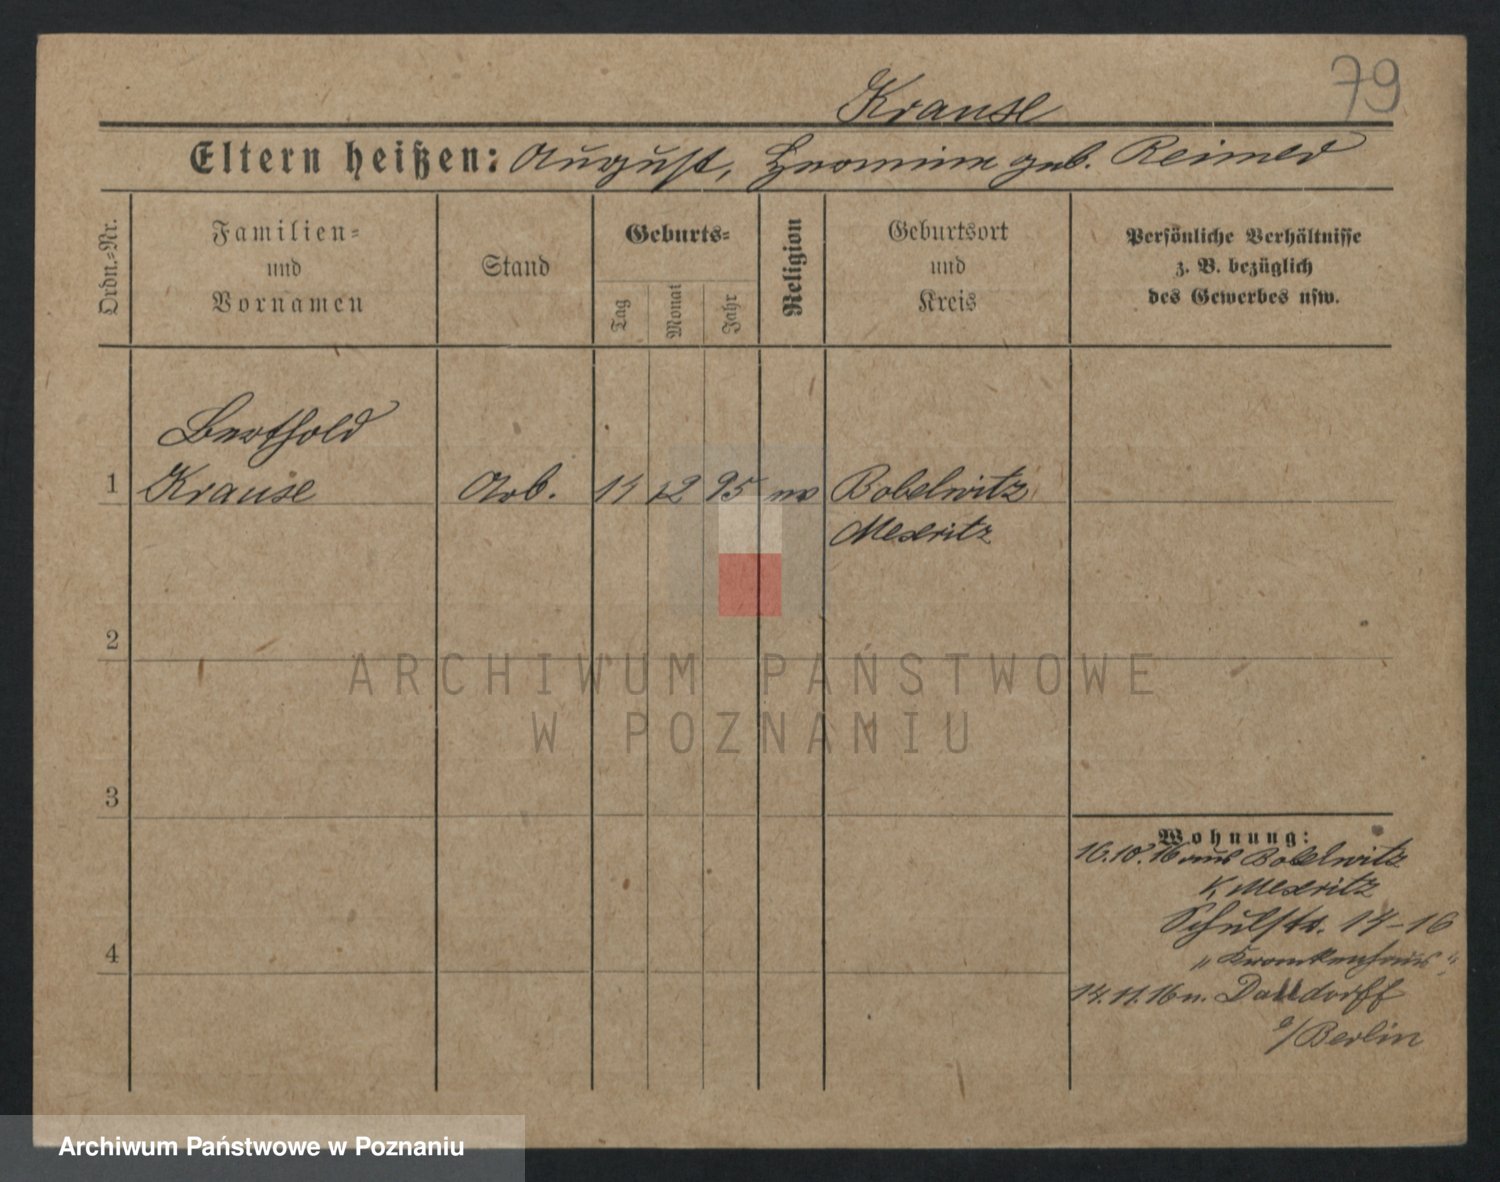 79
Krause
Eltern heißen: August, Hermine geb. Reimer
Ordn.-Nr.
Familien-
und
Vornamen
Stand
Geburts-
Tag
Monat
Jahr
Religion
Geburtsort
und
Kreis
Persönliche Verhältnisse
z. B. bezüglich
des Gewerbes usw.
Berthold
1 Krause Arb. 11 12 95 ev Bobelwitz
Meseritz
2
ARCHIWUM PAŃSTWOWE
W POZNANIU
3
Wohnung:
16.10.16 aus Bobelwitz
K. Meseritz
Schulstr. 14-16
4
"Krankenhaus"
14.11.16 n. Dalldorff
b/Berlin
Archiwum Państwowe w Poznaniu